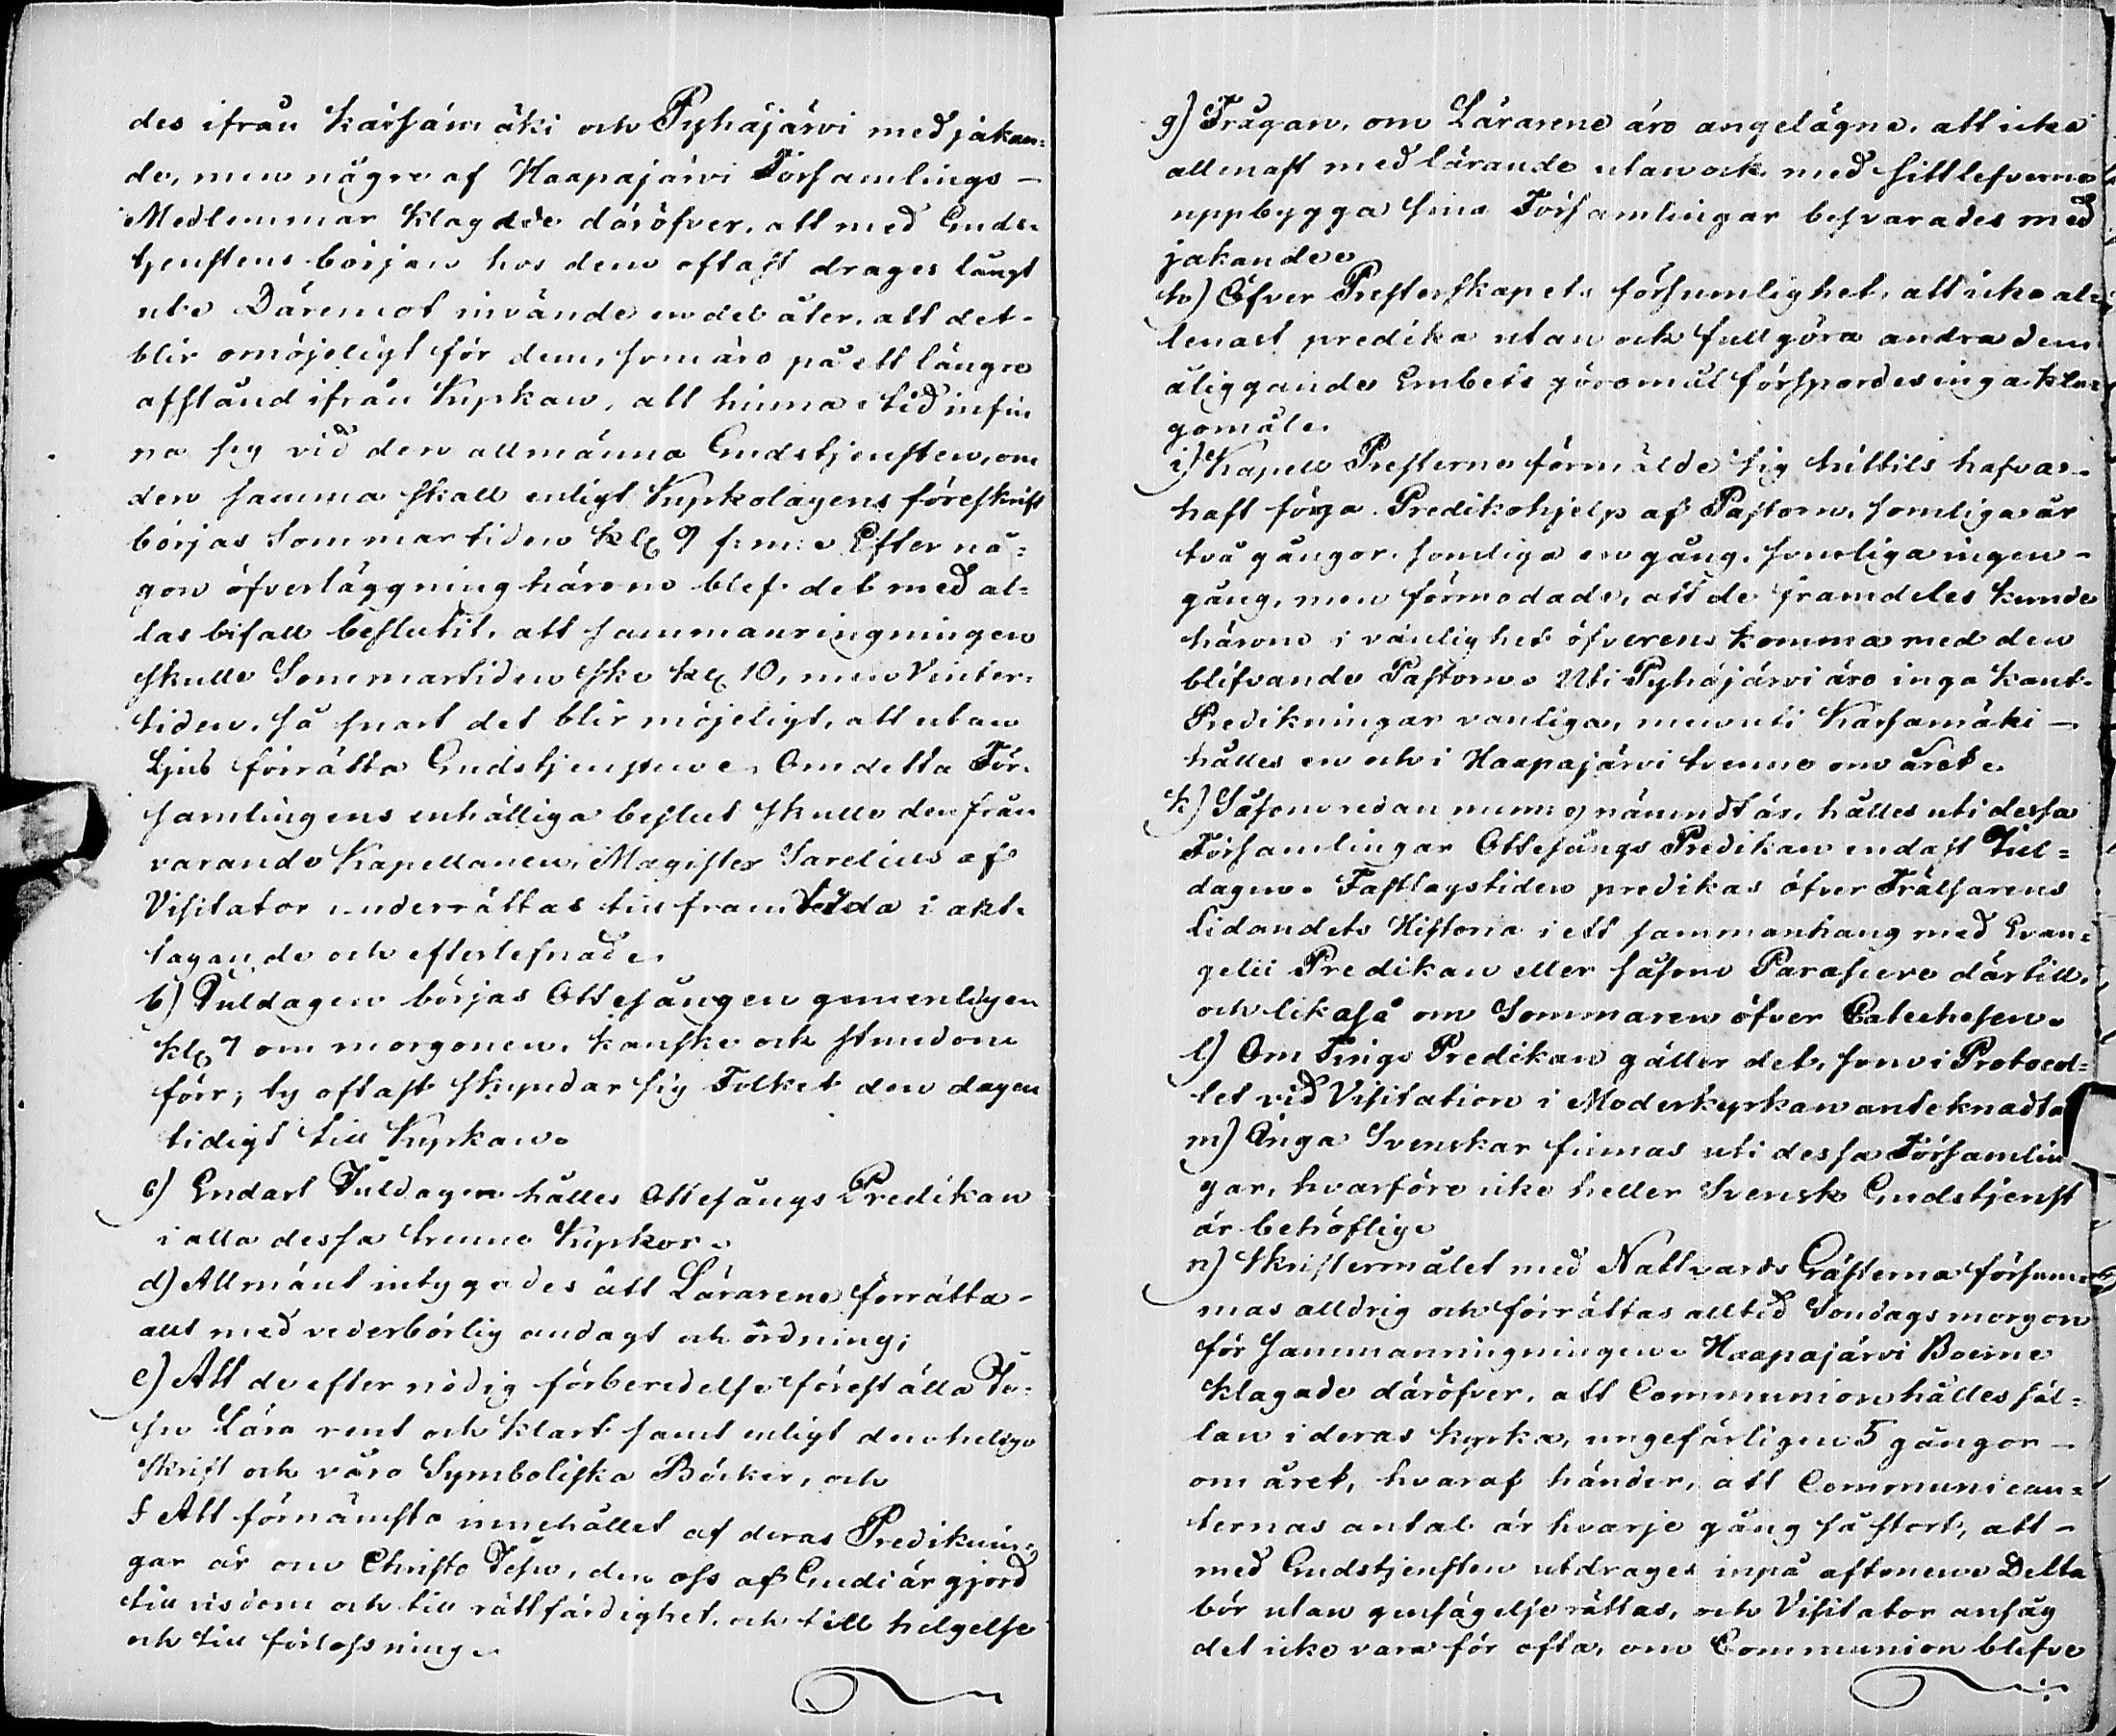 des ifrån Kärsämäki och Pyhäjärvi med jakan-
de, men några af Haapajärvi Församlings –
Medlemmar klagade däröfver, att med Guds-
tjenstens början hos dem oftast drages långt
ut. Däremot invände en del åter, att det
blir omöjeligt för dem, som äro på ett längre
afstånd ifrån Kyrkan, att hinna i tid infin
na sig vid den allmänna Gudstjensten, om
den samma skall enligt Kyrkolagens föreskrift
börjas Sommartiden kl. 9 f: m: Efter nå-
gon öfverläggning härom blef det med al-
las bifall beslutit, att sammanringningen
skulle Sommartiden ske kl. 10, men Vinter-
tiden, så snart det blir möjeligt, att utan
Ljus förrätta Gudstjensten. Om detta För-
samlingens enhälliga beslut skulle den från
varande Kapellanen, Magister Sarelius af
Visitator underrättas till framtida i akt-
tagande och efterlefnad.
b) Juldagen börjas Ottesången gemenligen
kl. 7 om morgonen, kanske och stundom
förr; ty oftast skyndar sig Folket den dagen
tidigt till Kyrkan.
c) Endast Juldagen hålles Ottesångs Predikan
i alla dessa trenne Kyrkor.
d) Allmänt intygades att Lärarene förrätta
allt med vederbörlig andagt och ordning;
e) Att de efter nödig förberedelse föreställa Je-
su Lära rent och klart samt enligt den heliga
Skrift och våra Symboliska Böcker, och
f Att förnämsta innehållet af deras Prediknin-
gar är om Christo Jesu, den oss af Gudi är gjord
till visdom och till rättfärdighet, och till helgelse
och till förlossning.
g) Frågan, om Lärarene äro angelägne, att icke
allenast med lärande utan ock med sitt lefverne
uppbygga sina Församlingar besvarades med
jakande
h) Öfver Presterskapets försumlighet, att icke al-
lenast predika utan och fullgöra andra dem
åliggande Embets göromål försporдes inga kla-
gomål.
i) Kapell Presterne förmälde sig hittils hafva
haft föga Predikohjelp af Pastorn, somliga år
två gångor, somliga en gång, somliga ingen –
gång, men förmodade, att de framdeles kunde
härom i vänlighet öfverens komma med den
blifvande Pastorn. Uti Pyhäjärvi äro inga
Predikningar vanliga, men uti Kärsämäki –
hålles en och i Haapajärvi trenne om året.
k) Såsom redan nämndt är, hålles uti dessa
Församlingar Ottesångs Predikan endast Jul-
dagen. Fastlagstiden predikas öfver Frälsarens
Lidandets Historia i ett sammanhang med Evan-
gelii Predikan eller såsom därtill,
och likaså om Sommaren öfver Catechesen.
l) Om Tings Predikan gäller det, som i Protocol-
let vid Visitation i Moderkyrkan antecknadt
m) Inga Svenskar finnas uti dessa Församlin
gar, hvarföre icke heller Svensk Gudstjenst
är behöflig
n) Skriftermålet med Nattvards Gästerna försum-
mas alldrig och förrättas alltid Söndags morgon
för sammanringningen. Haapajärvi Boerne
klagade däröfver, att Communion hålles säl-
lan i deras kyrka, ungefärligen 5 gångor –
om året, hvaraf händer, att Communican-
ternas antal är hvarje gång så stort, att –
med Gudstjensten utdrages inpå aftonen. Detta
bör utan gensägelse rättas, och Visitator ansåg
det icke vara för ofta, om Communion blefve